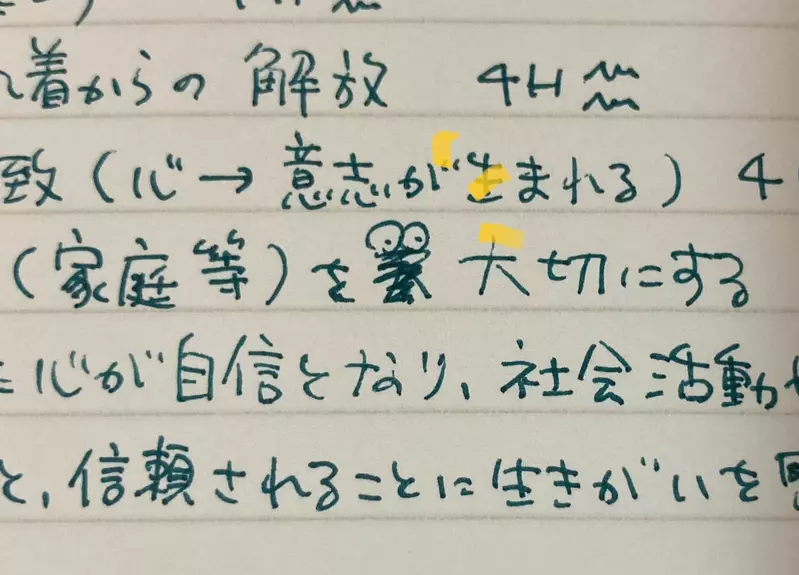 着からの 解放 4H
致(心→意志が生まれる) 4
(家庭等)を 大切にする
心が自信となり、社会活動
と、信頼されることに生きがいを